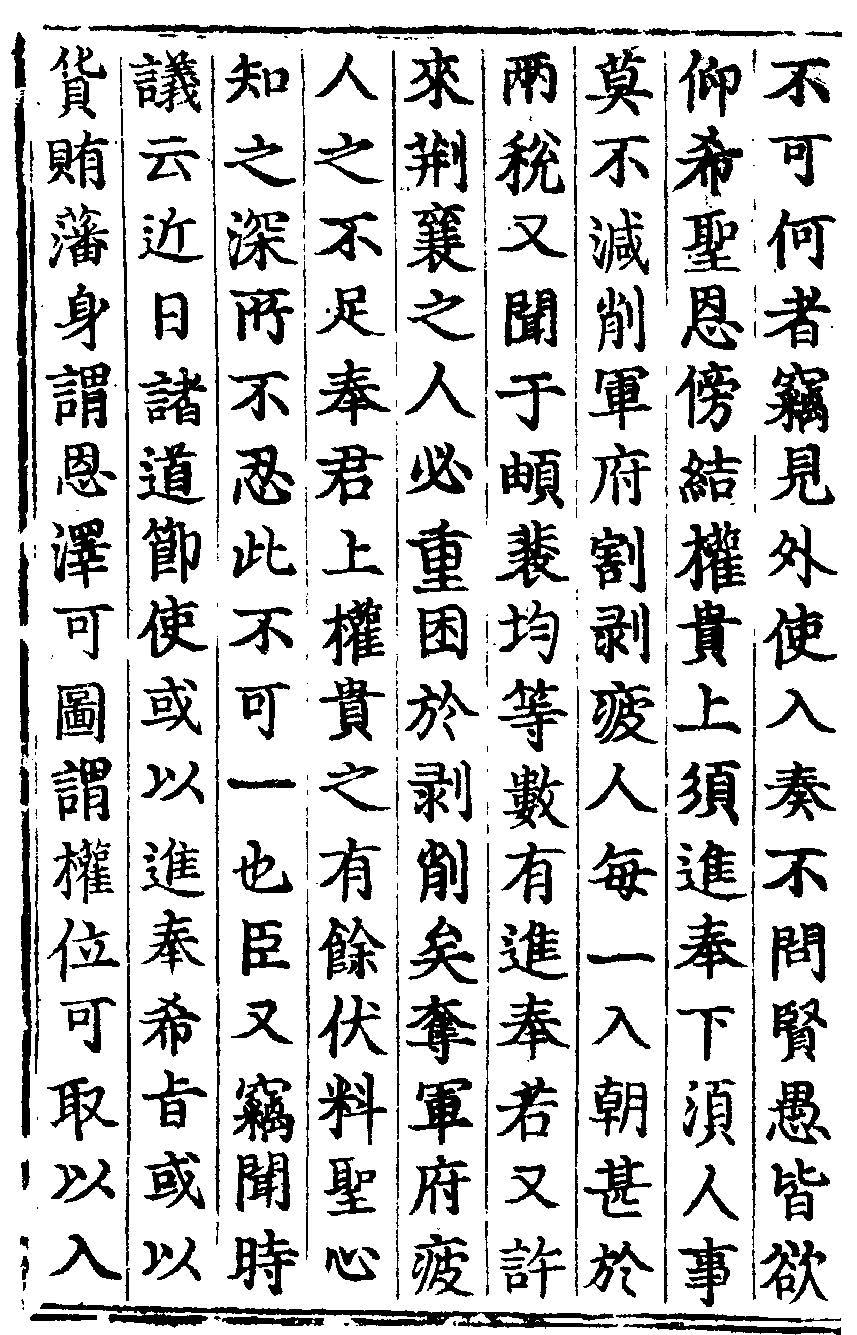 不可何者竊見外使入奏不問賢愚皆欲
仰希聖恩傍結權貴上須進奉下須人事
莫不減削軍府割剥疲人每一入朝甚於
兩稅又聞于頔裴均等數有進奉若又許
來荆襄之人必重困於剥削矣奪軍府疲
人之不足奉君上權貴之有餘伏料聖心
知之深所不忍此不可一也臣又竊聞時
議云近日諸道節使或以進奉希旨或以
貨賄藩身謂恩澤可圖謂權位可取以入